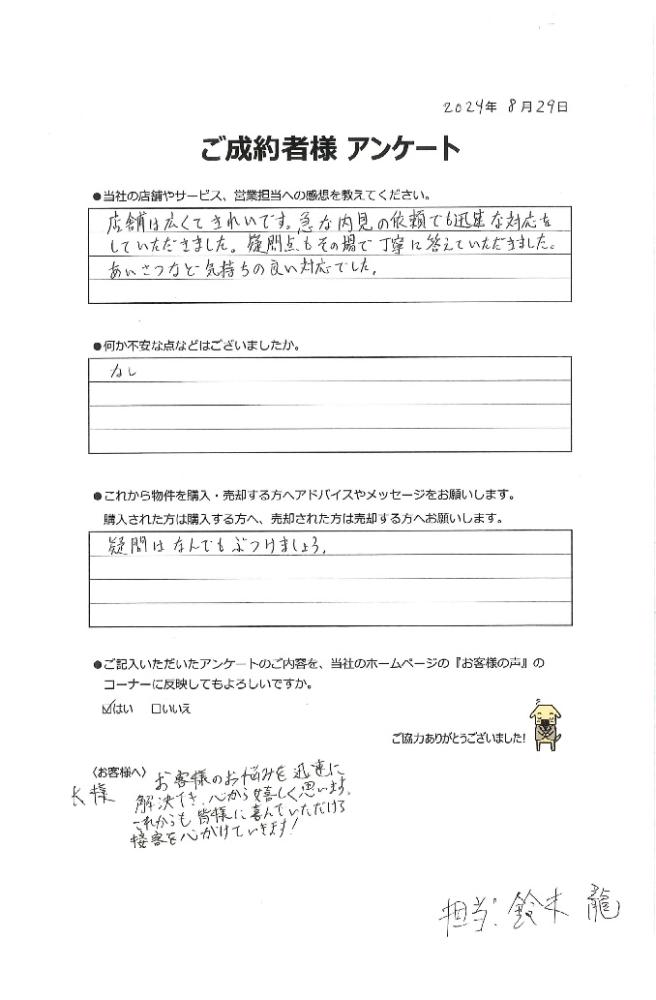 2024年 8月29日
ご成約者様 アンケート
●当社の店舗やサービス、営業担当への感想を教えてください。
店舗は広くてきれいです。急な内見の依頼でも迅速な対応を
していただきました。疑問点もその場で丁寧に答えていただきました。
あいさつなど気持ちの良い対応でした。
●何か不安な点などはございましたか。
なし
●これから物件を購入・売却する方へアドバイスやメッセージをお願いします。
購入された方は購入する方へ、売却された方は売却する方へお願いします。
疑問はなんでもぶつけましょう。
●ご記入いただいたアンケートのご内容を、当社のホームページの『お客様の声』の
コーナーに反映してもよろしいですか。
☑はい ☐いいえ
ご協力ありがとうございました!
〈お客様へ〉
K様
お客様のお悩みを迅速に
解決でき、心から嬉しく思います。
これからも皆様に喜んでいただける
接客を心がけていきます!
担当:鈴木 龍